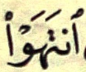 ٱنتَهَوْا۟